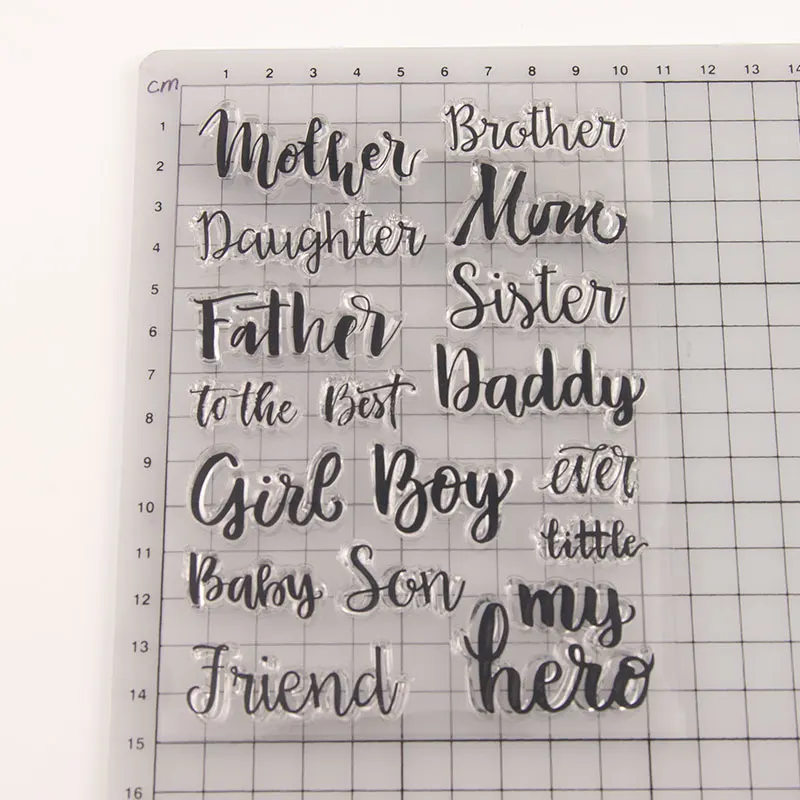 1 2 3 4 5 6 7 8 9 10 11 12 13 14
cm
1
2
3
4
5
6
7
8
9
10
11
12
13
14
15
16
Mother
Brother
Mum
Daughter
Sister
Father
Daddy
to the Best
ever
Girl Boy
little
Baby Son
my
hero
Friend